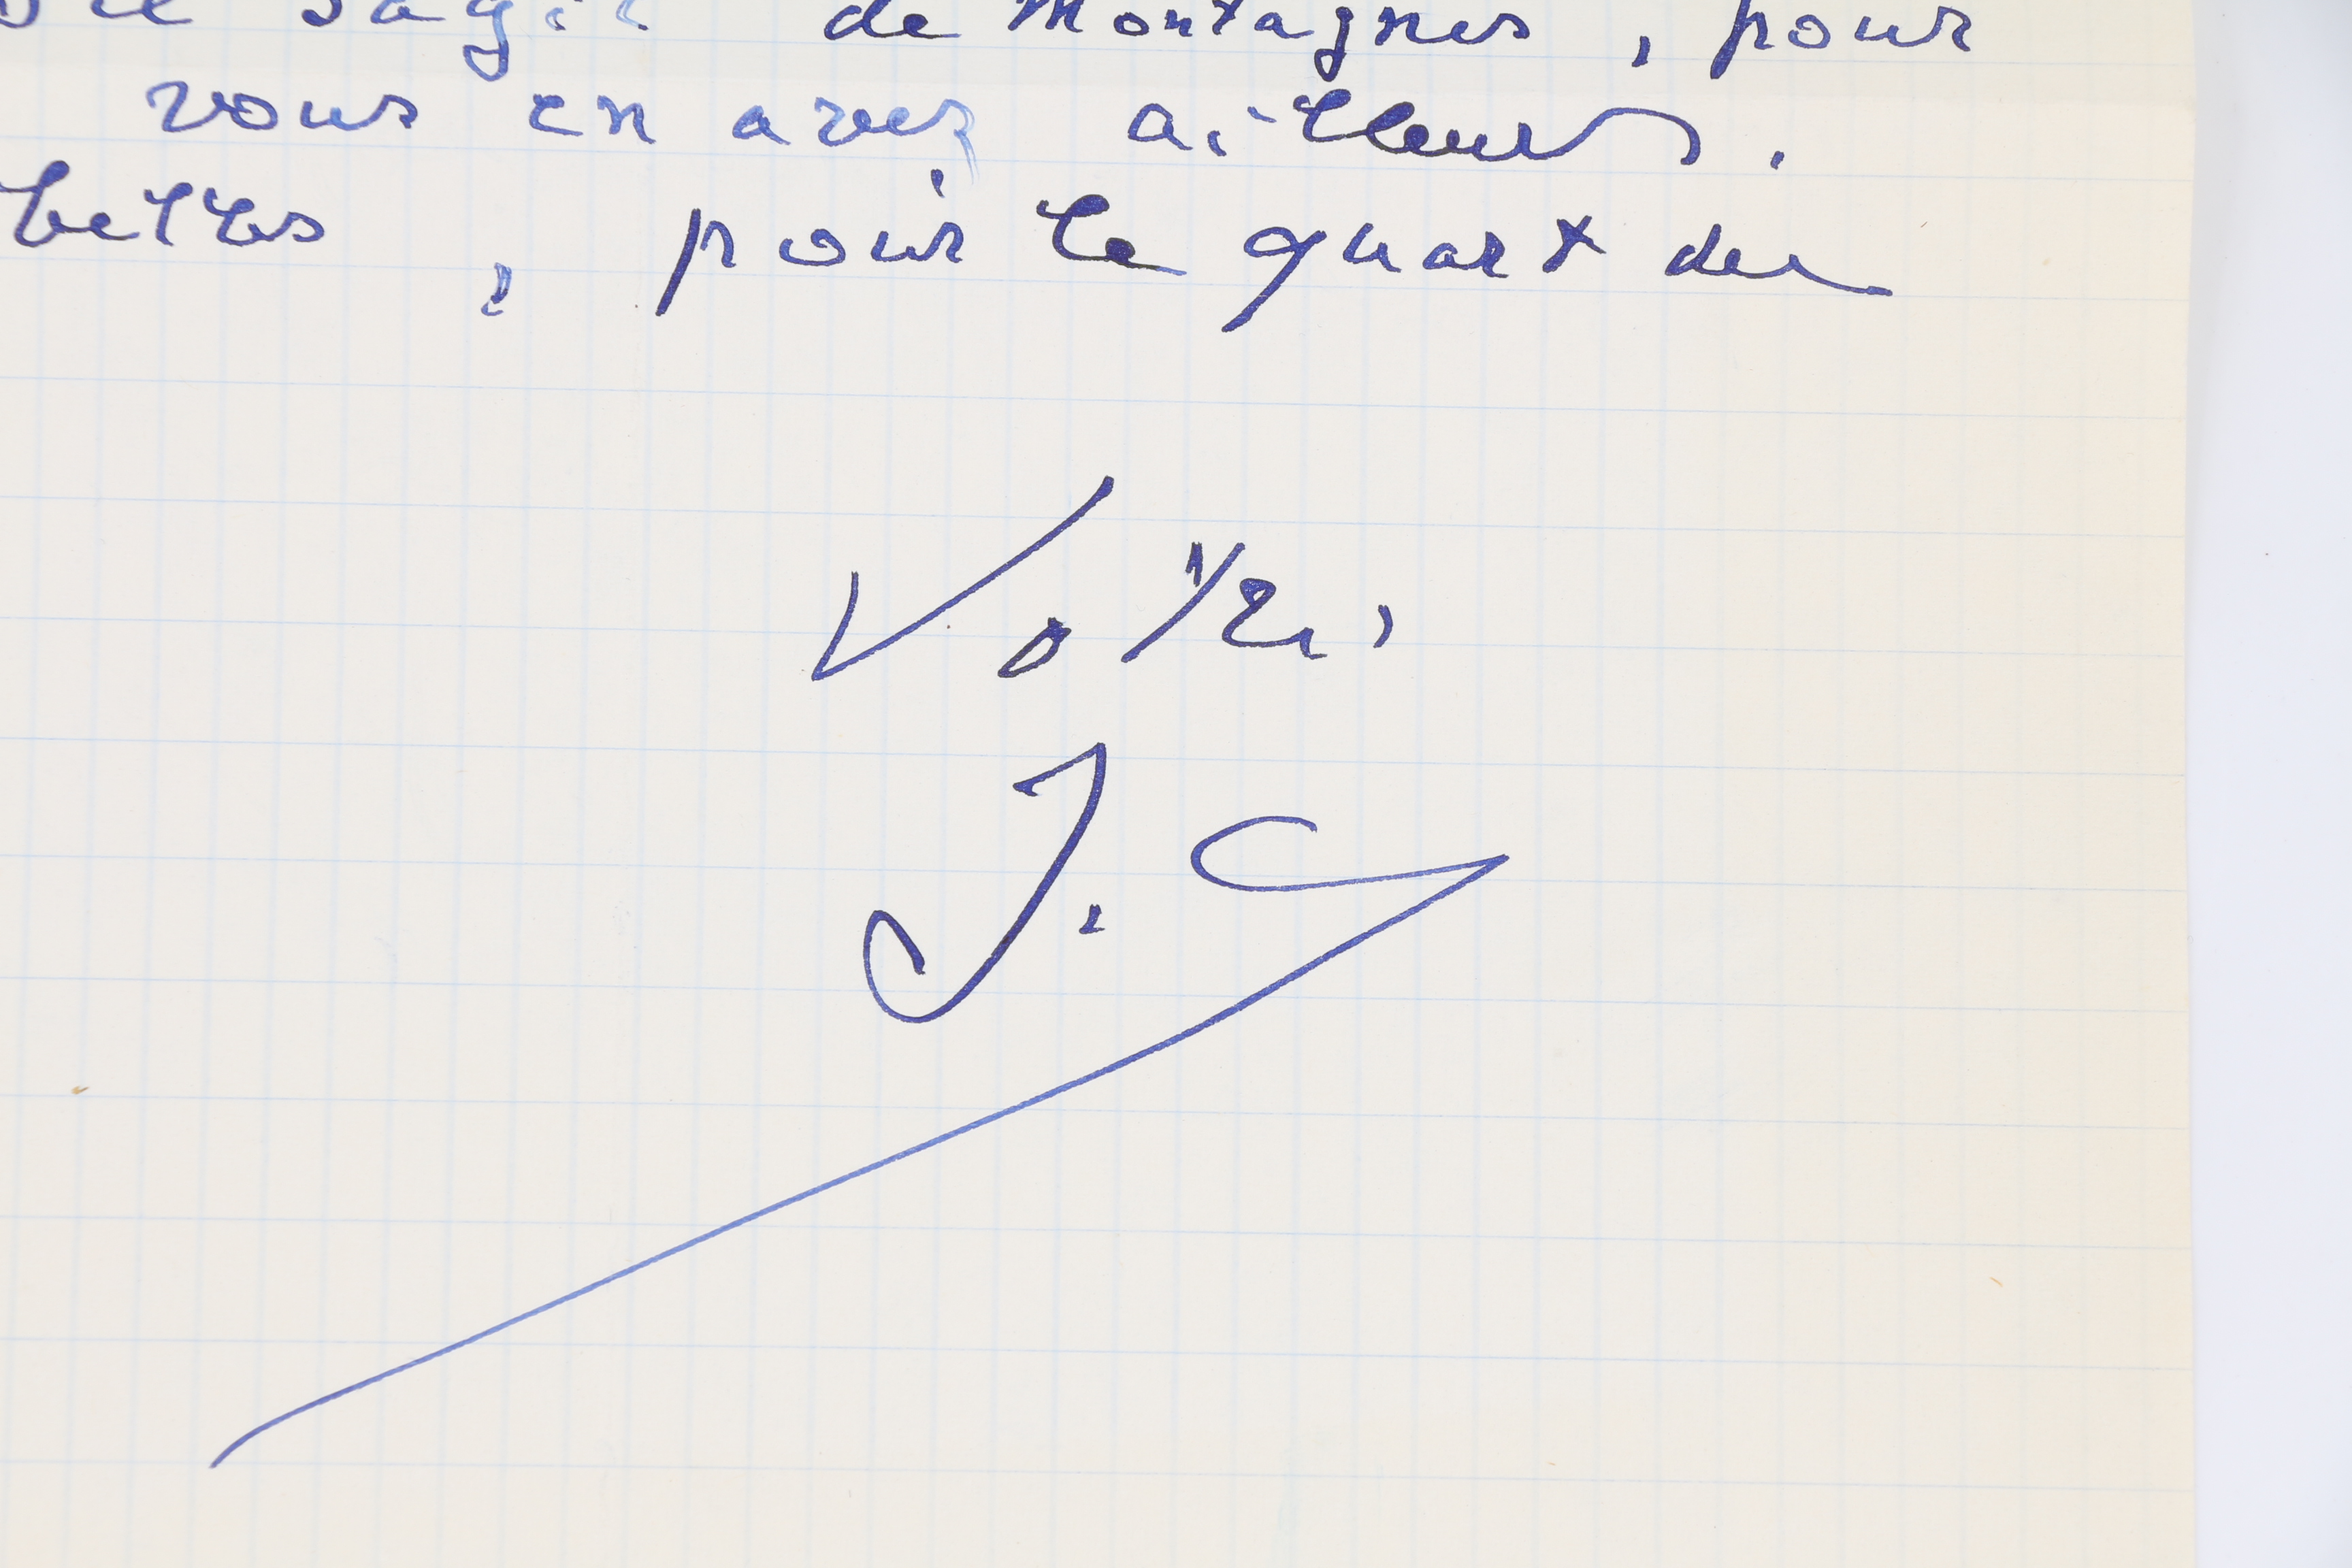 s'agit de montagnes, pour
vous en avez ailleurs.
belles, pour le quart des
Votre,
J. C